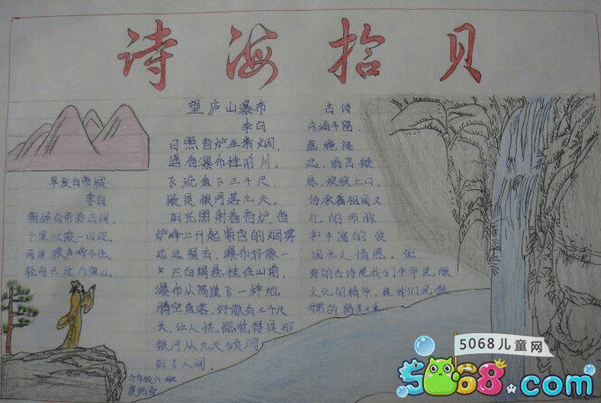 诗海拾贝
早发白帝城
李白
朝辞白帝彩云间,
千里江陵一日还。
两岸猿声啼不住,
轻舟已过万重山。
望庐山瀑布
李白
日照香炉生紫烟,
遥看瀑布挂前川。
飞流直下三千尺,
疑是银河落九天。
阳光照射着香炉,香
炉峰上升起紫色的烟雾
远远望去,瀑布好像一
白绸悬挂在山前,
瀑布从高崖飞一样地
腾空直落,好像有三千尺
长,让人恍
银河从九天倾泻
到了人间。
古诗
内涵丰富,
上口,
传承着祖国文
化的血脉
和丰富的爱
国主义情感。
的古诗是我们中华民族
文化的精华,是我们民族
的
六年级
5068儿童网
5068.com